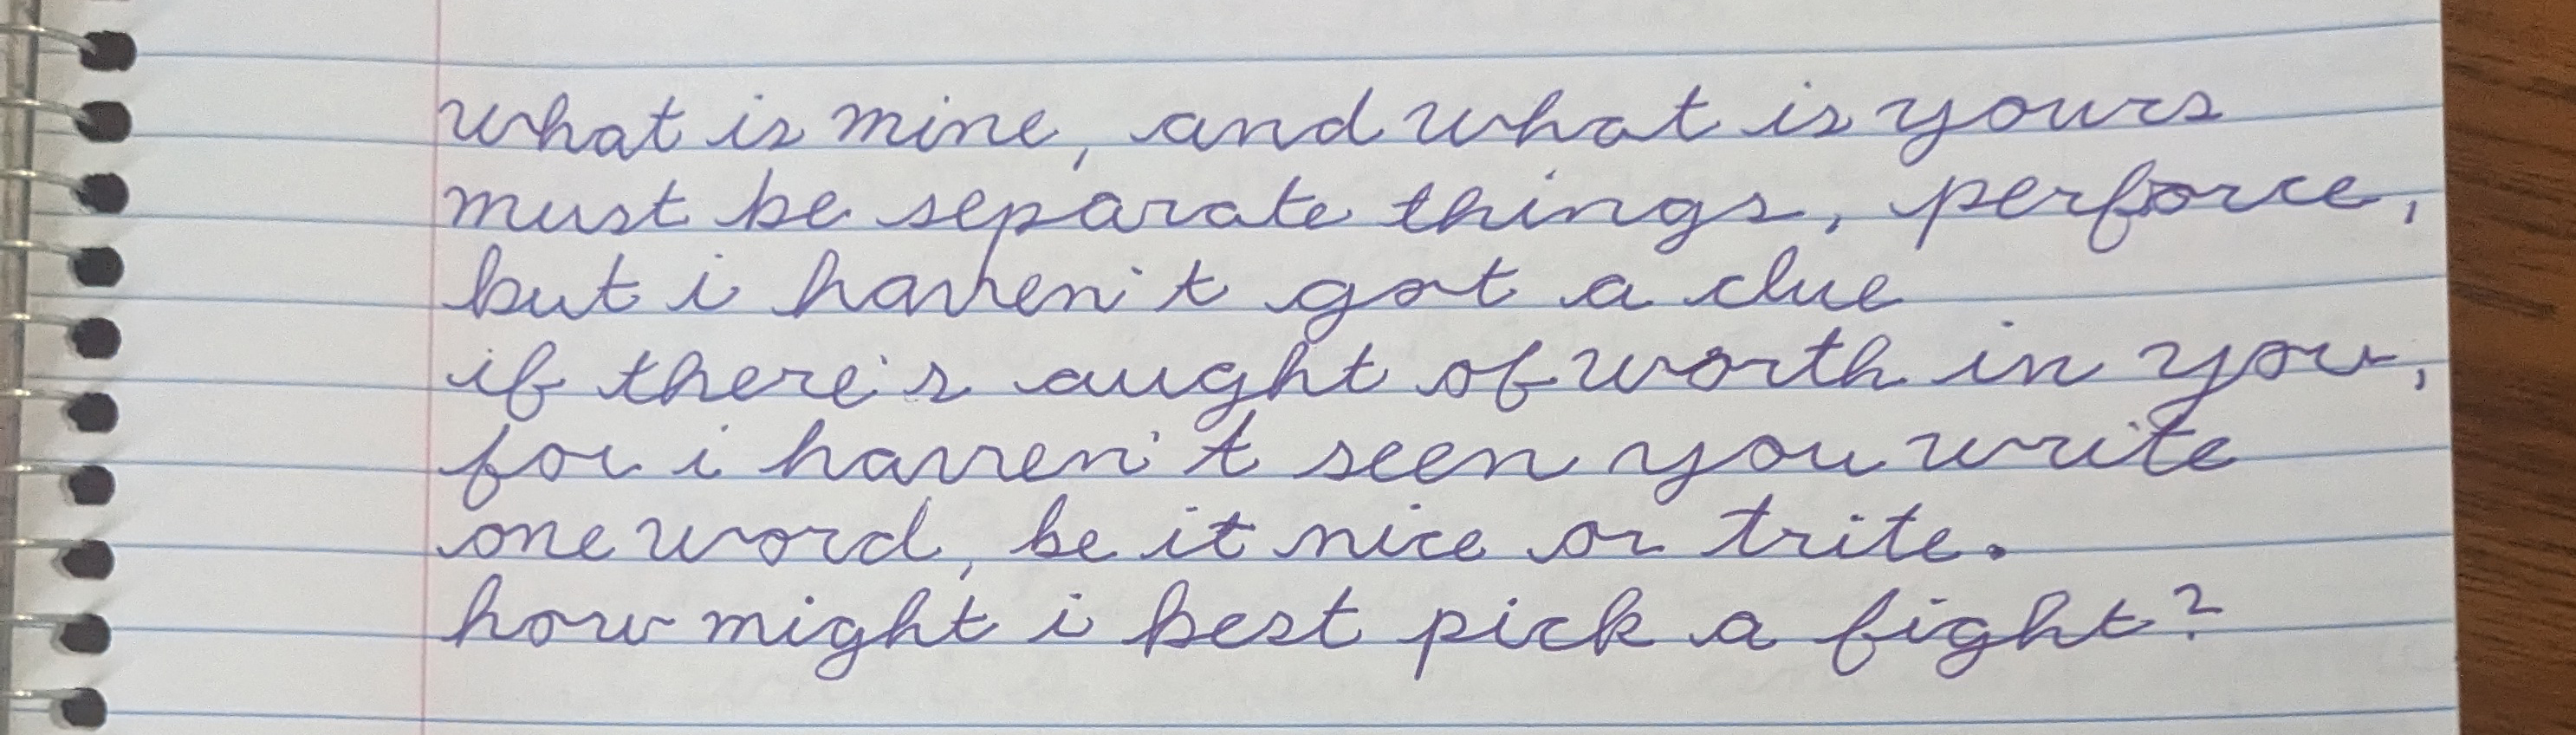 what is mine, and what is yours
must be separate things, perforce,
but i haven't got a clue
if there's aught of worth in you,
for i haven't seen you write
one word, be it nice or trite.
how might i best pick a fight?